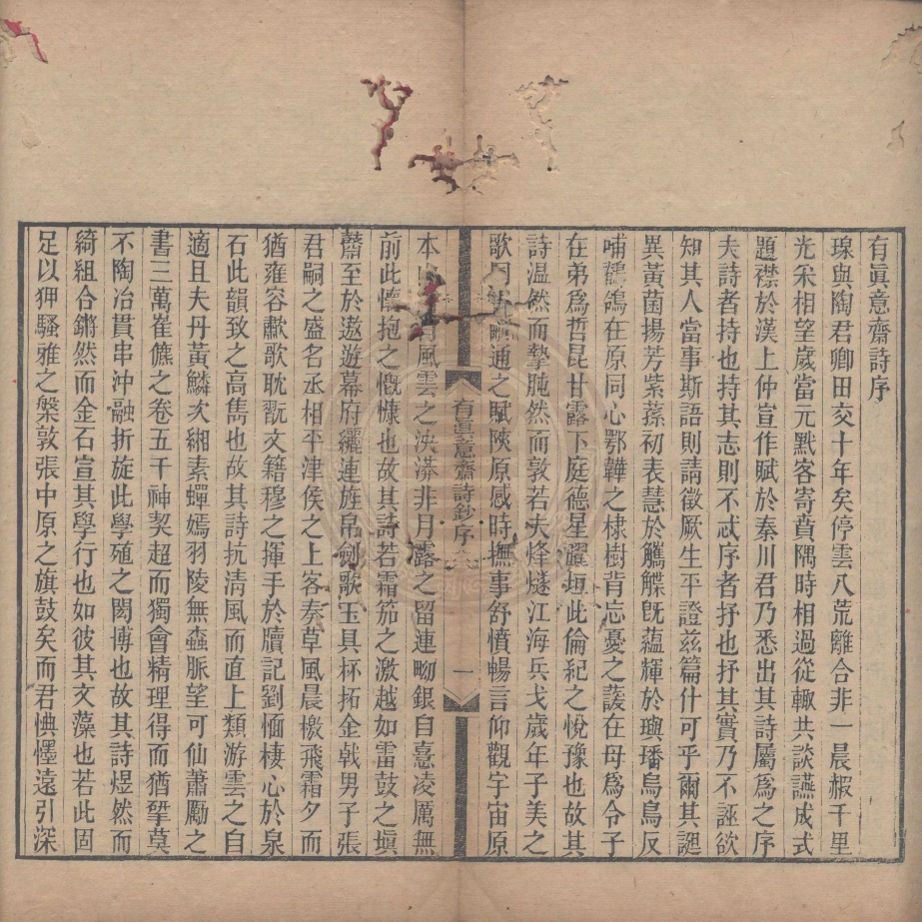 有眞意齋詩序
與陶君卿田交十年矣停雲八荒離合非一晨椵千里
光采相望歲當元黓客寄賁隅時相過從輙共談讌成式
題襟於漢上仲宣作賦於秦川君乃悉出其詩屬爲之序
夫詩者持也持其志則不忒序者抒也抒其實乃不誣欲
知其人當事斯語則請徵厥生平證茲篇什可乎爾其誕
異黃菌揚芳紫蓀初表慧於觿韘旣蘊輝於璵璠烏鳥反
哺鶺鴒在原同心鄂韡之棣樹背忘憂之蘐在母爲令子
在弟爲哲昆甘露下庭德星耀垣此倫紀之悅豫也故其
詩温然而摯肫然而敦若夫烽燧江海兵戈歲年子美之
歌同通之賦陝原感時撫事舒憤暢言仰觀宇宙原
有眞意齋詩鈔序 一
本風雲之泱漭非月露之留連畹銀自憙凌厲無
前此懷抱之慨慷也故其詩若霜笳之激越如雷鼓之塡
鼘至於遨遊幕府纚連旌帛劍歌玉具杯拓金戟男子張
君嗣之盛名丞相平津侯之上客奏草風晨檄飛霜夕而
猶雍容歗歌耽翫文籍穆之揮手於牘記劉愐棲心於泉
石此韻致之高雋也故其詩抗清風而直上類游雲之自
適且夫丹黃鱗次緗素蟬嫣羽陵無蟲脈望可仙蕭勵之
書三萬崔儦之卷五千神契超而獨會精理得而猶揅莫
不陶冶貫串沖融折旋此學殖之閎博也故其詩煜然而
綺組合鏘然而金石宣其學行也如彼其文藻也若此固
足以狎騷雅之槃敦張中原之旗鼓矣而君怏懌遠引深